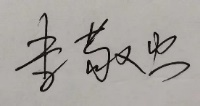 李敬忠